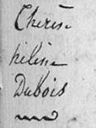 Chérés=
=héline
Dubois